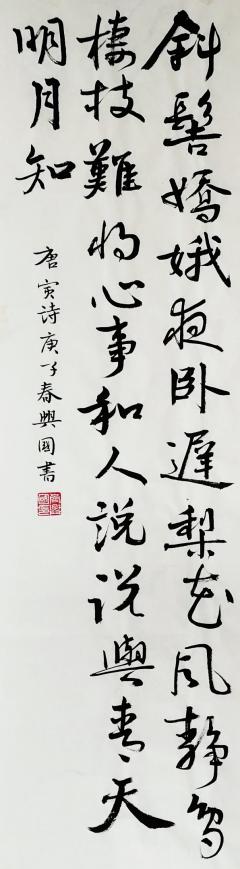 斜髻嬌娥夜卧遲梨花風静鳥
棲枝難將心事和人説説與青天
明月知
唐寅詩庚子春興國書